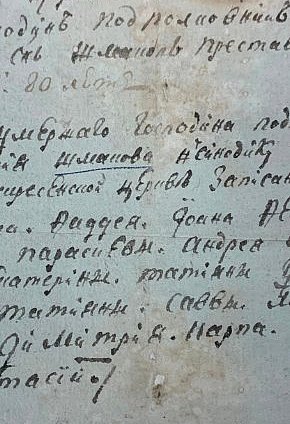 подинъ подполковникъ
снъ жмаковъ преста
80 летъ
умершаго господина под
жмакова нсинодику
скресенской церкве записан
Фаддея. Iоана
параскевы. андрея
катерины. татияны
татияны. саввы.
димитрия. карпа.
тасiи.